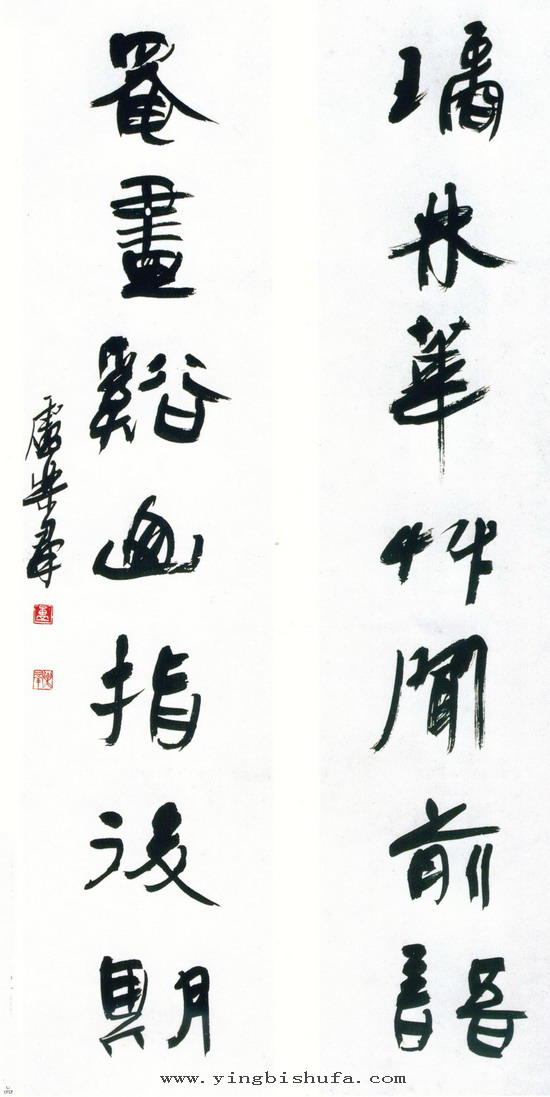 璚林華艸聞前語
罨畫谿山指後期
盧樂羣
www.yingbishufa.com